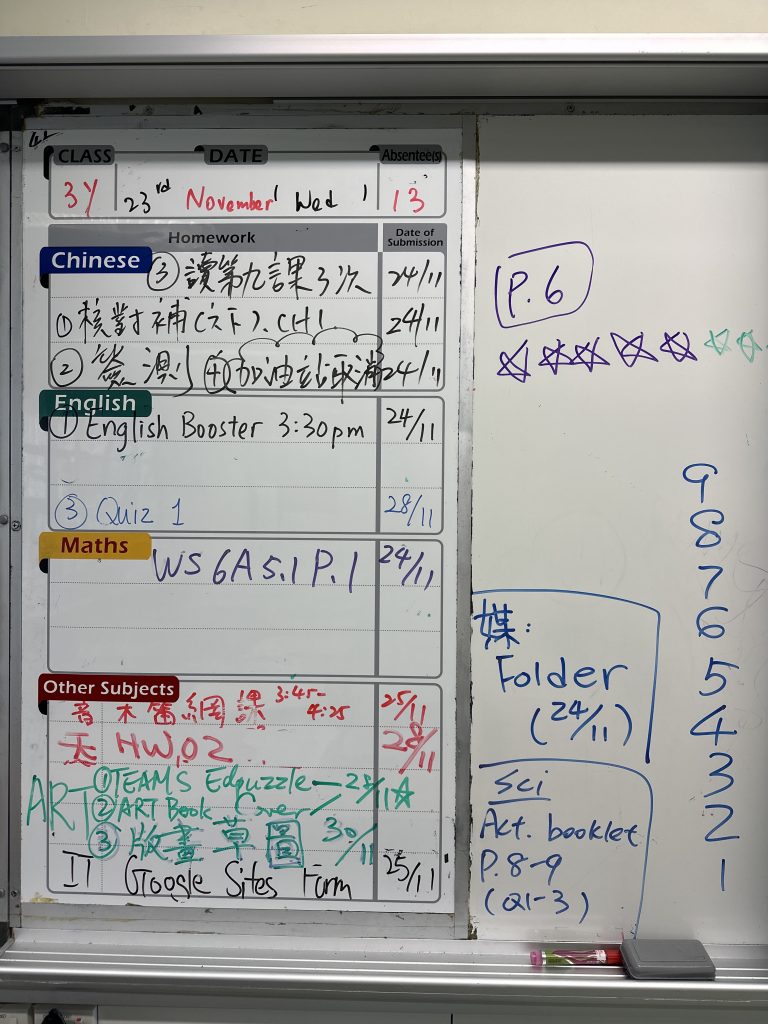 CLASS DATE Absentee(s)
3Y 23rd November Wed 13
Homework Date of Submission
Chinese ③ 讀第九課3次 24/11
① 核對補(六下), CH1 24/11
② 簽 澳 ④ 加油站取消 24/11
English
① English Booster 3:30pm 24/11
③ Quiz 1 28/11
Maths
WS 6A 5.1 P.1 24/11
Other Subjects
網課 3:45-4:25 25/11
HW02 28/11
ART ① TEAMS Edpuzzle — 25/11 ☆
② ART Book Cover
③ 版畫草圖 30/11
IT Google Sites Form 25/11
P.6
媒:
Folder
(24/11)
Sci
Act. booklet
P.8-9
(Q1-3)
9
8
7
6
5
4
3
2
1